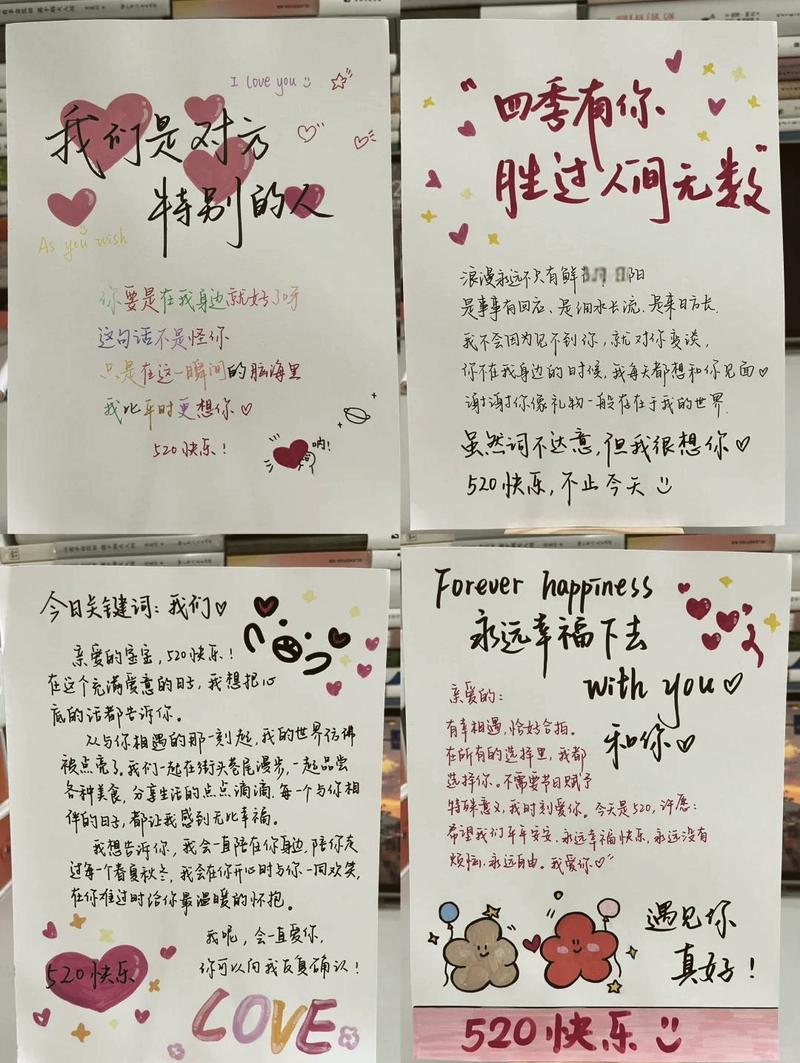 I love you
我们是对方
特别的人
As you wish
你要是在我身边就好了呀
这句话不是怪你
只是在这一瞬间的脑海里
我比平时更想你
520快乐！
呐！
"四季有你
胜过人间无数"
浪漫永远不只有鲜
阳
是事事有回应、是细水长流、是来日方长.
我不会因为见不到你，就对你变淡，
你不在我身边的时候，我每天都想和你见面
谢谢你像礼物一般存在于我的世界.
虽然词不达意，但我很想你
520快乐，不止今天
今日关键词：我们
亲爱的宝宝，520快乐！
在这个充满爱意的日子，我想把心
底的话都告诉你。
从与你相遇的那一刻起，我的世界仿佛
被点亮了。我们一起在街头巷尾漫步，一起品尝
各种美食，分享生活的点点滴滴.每一个与你相
伴的日子，都让我感到无比幸福。
我想告诉你，我会一直陪在你身边，陪你走
过每一个春夏秋冬，我会在你开心时与你一同欢笑，
在你难过时给你最温暖的怀抱。
我呢，会一直爱你，
你可以向我反复确认！
520快乐
LOVE
Forever happiness
永远幸福下去
with you
和你
亲爱的：
有幸相遇，恰好合拍。
在所有的选择里，我都
选择你。不需要节日赋予
特殊意义，我时刻爱你。今天是520，许愿：
希望我们平平安安、永远幸福快乐，永远没有
烦恼、永远自由。我爱你
遇见你
真好！
520快乐